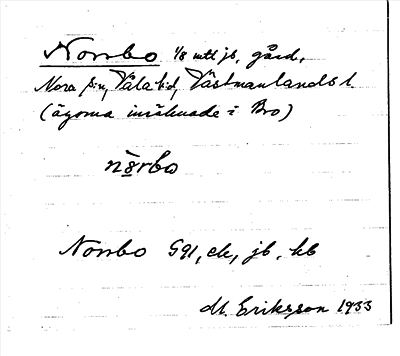 Norrbo 1/8 mtl jb, gård,
Nora sn, Våla hd, Västmanlands l.
(ägorna inräknade i Bro)
nòrbo
Norrbo G91, ek, jb, kb
M. Eriksson 1933